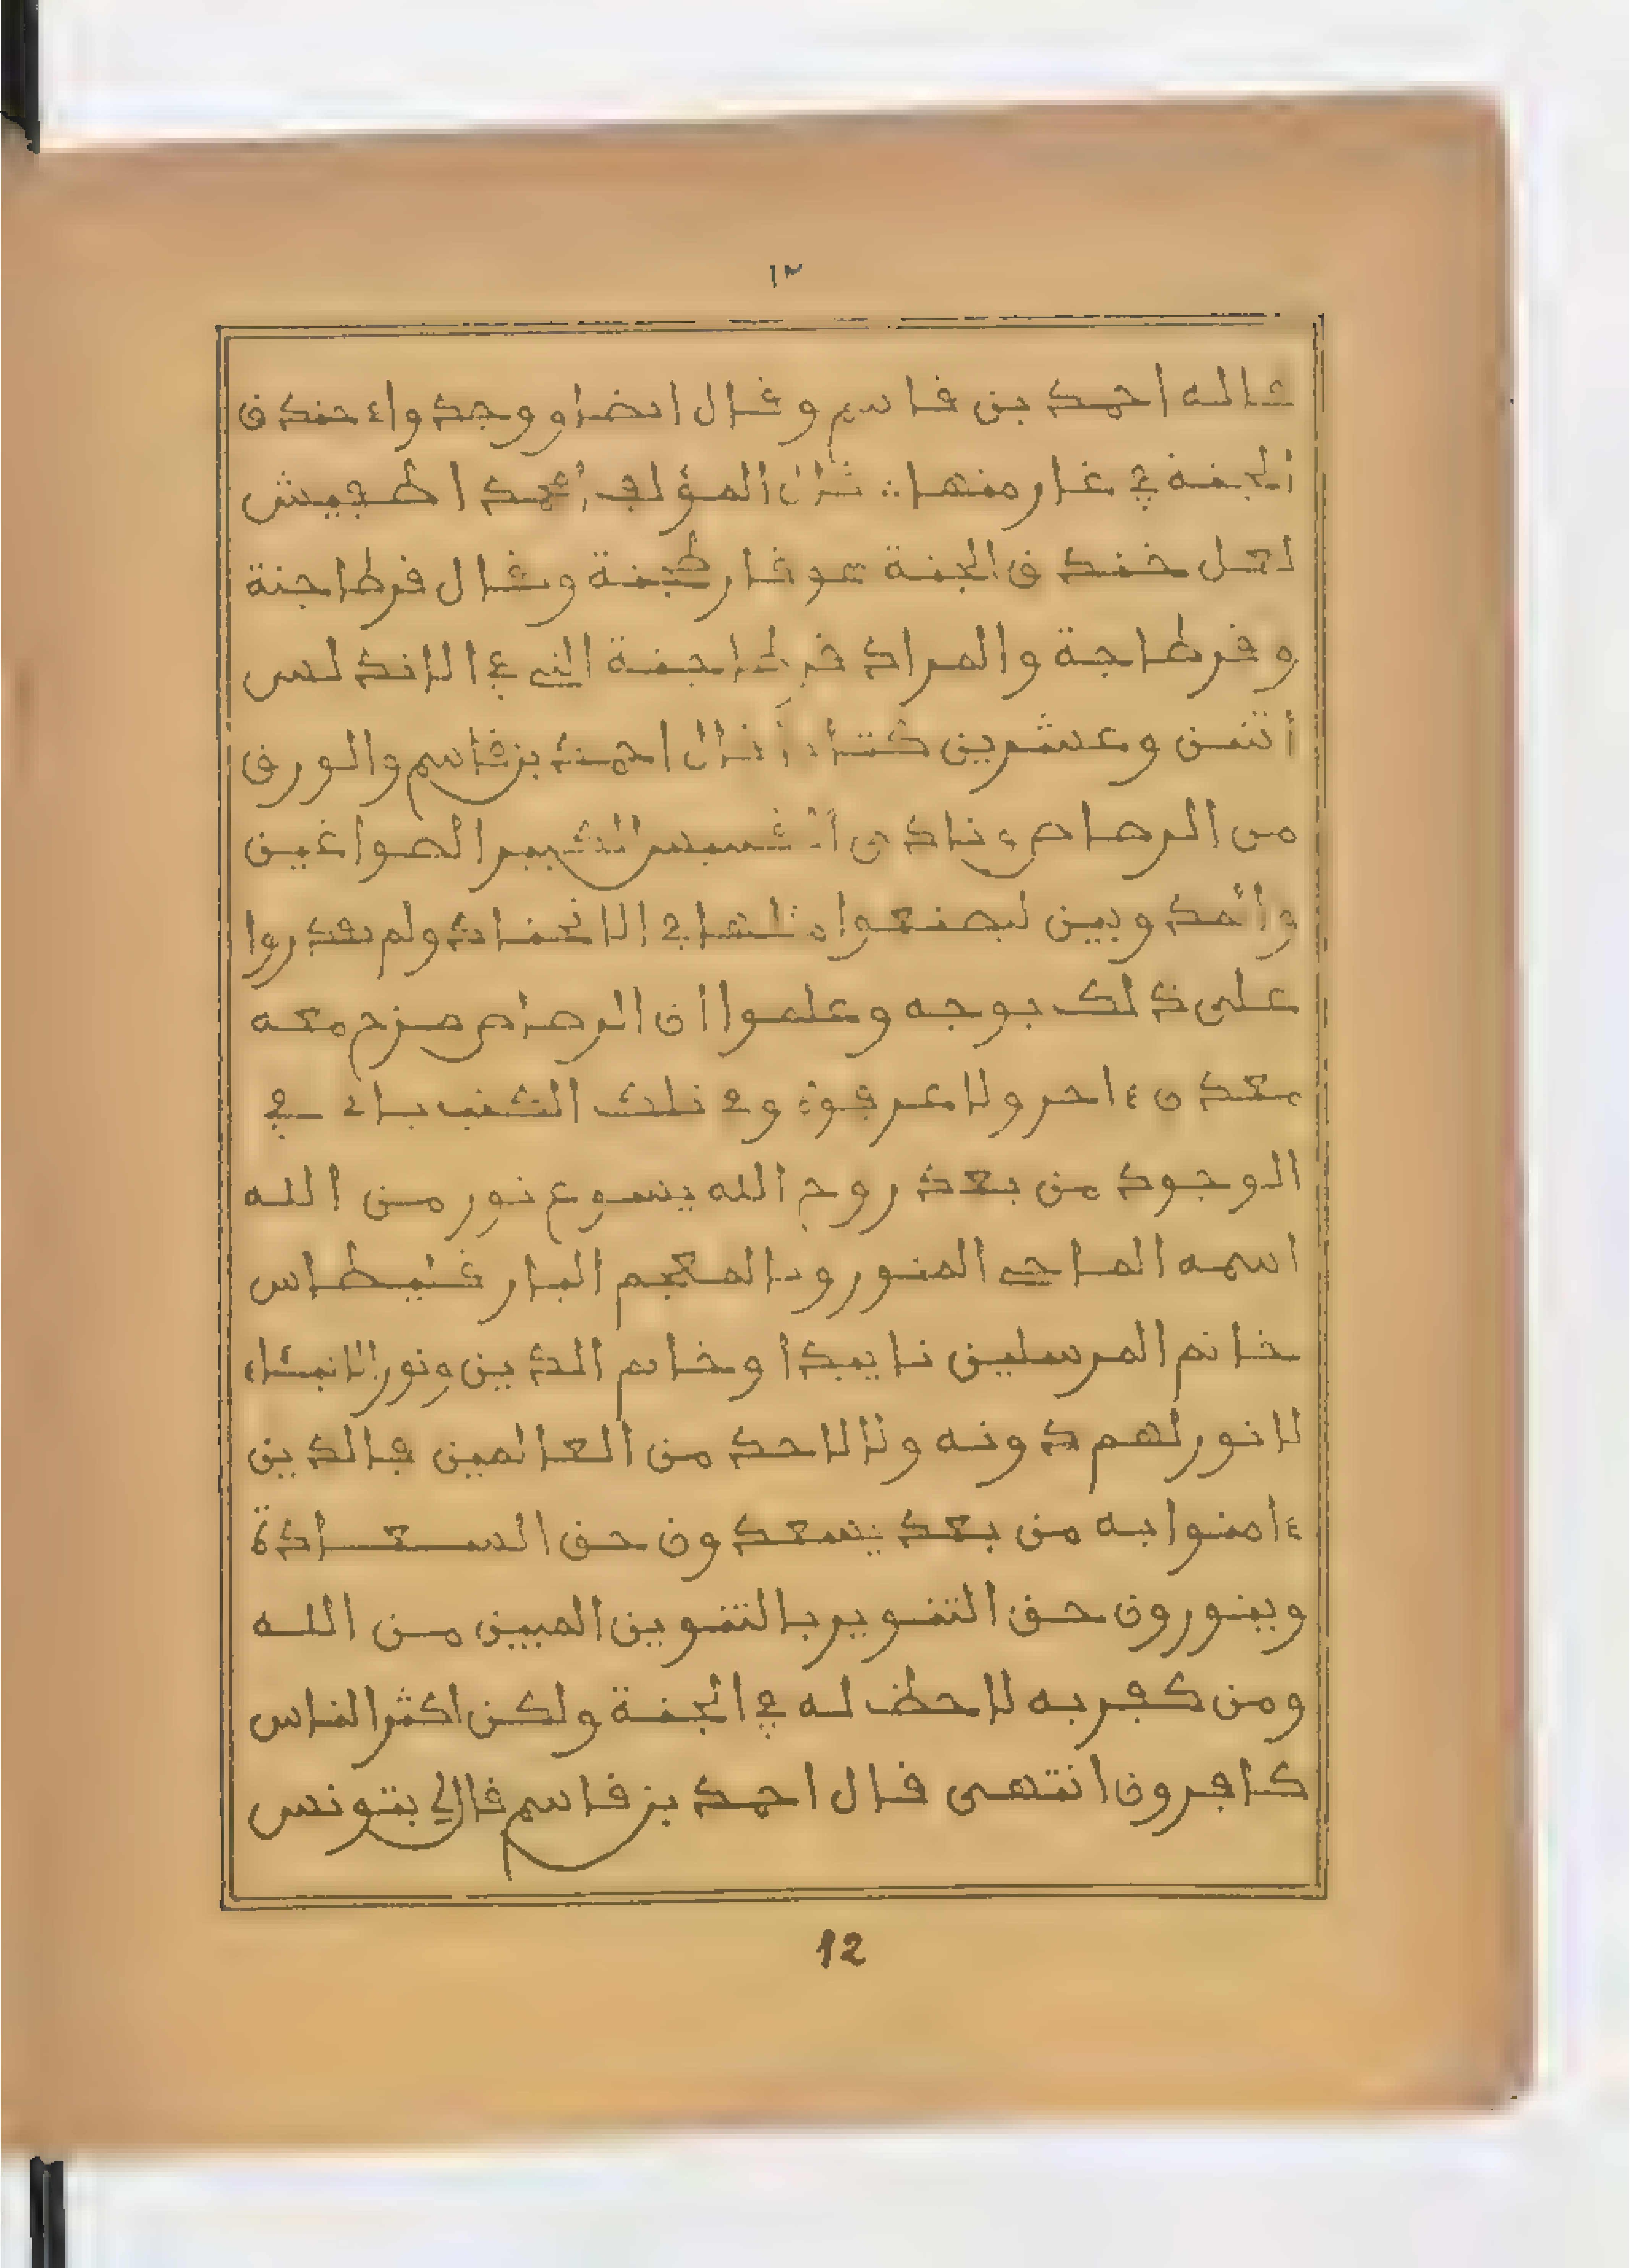 ١٢
قاله احمد بن قاسم وقال ايضا ووجدواء خندق
الجنة في غار منها قال المؤلف امحمد اطفيش
لعل خندق الجنة هو قارطجنة ويقال قرطاجنة
وقرطاجة والمراد قرطاجنة التي في الاندلس
اثنين وعشرين كتابا قال احمد بن قاسم والورق
من الرصاص ونادى القسيس الكبير الصواغين
والمدوبين ليصنعوا مثلها في الاتخاذ ولم يقدروا
على ذلك بوجه وعلموا ان الرصاص مزج معه
معدن ءاخر ولا عرفوه وفي تلك الكتب ياتي في
الوجود من بعد روح الله يسوع نور من الله
اسمه الماحي المنور وبالمعجم البارقليطاس
خاتم المرسلين تاييدا وخاتم الدين ونور الانبياء
لا نور لهم دونه ولا لاحد من العالمين فالذين
ءامنوا به من بعد يسعدون حق السعادة
وينورون حق التنوير بالتنوين المبين من الله
ومن كفر به لا حظ له في الجنة ولكن اكثر الناس
كافرون انتهى قال احمد بن قاسم قال لي بتونس
12